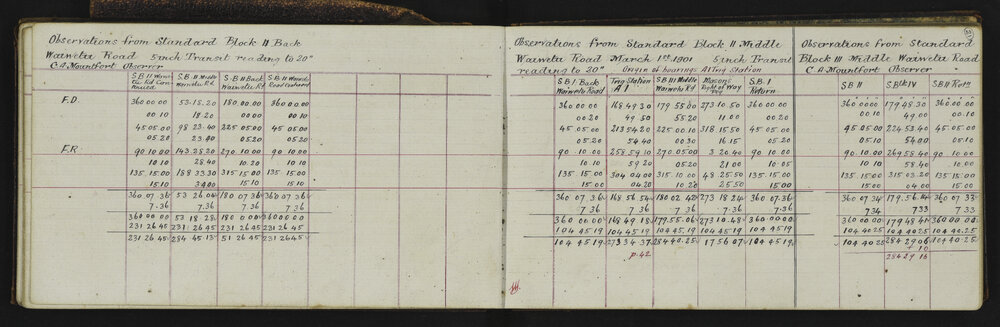 Observations from Standard Block II Back
Waiwetu Road 5 inch Transit reading to 20"
C. A. Mountfort Observer
S.B II Middle Waiwetu Rd
S.B II Back Waiwetu Rd
F.D. 360 00 00 53.18.20 180 00.00 360 00.00
00.10 18.20 00.00 00.10
45 05.00 98 23.40 225 05.00 45 05.00
05.20 23.40 05.20 05.20
F.R. 90 10.00 143.28.20 270 10.00 90 10.00
10.10 28.40 10.20 10.10
135 15.00 188 33.30 315 15.00 135 15.00
15.10 34.00 15.10 15.10
360 07.36 53 26 04 180 07 36 360 07.36
7.36 7.36 7.36 7.36
360 00 00 53 18 28 180 0 00 360 00 00
231 26 45 231 26 45 231 26 45 231 26 45
231 26 45 284 45.13 51 26 45 231 26 45
Observations from Standard Block II Middle
Waiwetu Road March 1st 1901 5 inch Transit
reading to 20" Origin of bearings A1 Trig Station
S.B I Back Waiwetu Road
Trig Station A 1
S.B III Middle Waiwetu Rd
Masons Right of Way Peg
S.B I Return
360 00 00 168 49 30 179 55 00 273 10 50 360 00.00
00 20 49 50 55 20 11 00 00 20
45 05.00 213 54 20 225 00 10 318 15 50 45 05.00
05.20 54 40 00 30 16 15 05.20
90 10.00 258.59 10 270.05 00 3 20 40 90 10.00
10.10 59 20 05 20 21 00 10.05
135 15.00 304 04 00 315 10 00 48 25.50 135 15.00
15.00 04.20 10 20 25 50 15.00
360 07.36 168 56 54 180 02 42 273 18 24 360 07.36
7.36 7.36 7.36 7.36 7.36
360 00 00 168 49 18 179.55.06 273 10.48 360 00.00
104 45 19 104 45 19 104 45.19 104 45.19 104 45 19
104 45 19 273 34 37 284 40.25 17 56 07 104 45 19
p. 42
Observations from Standard
Block III Middle Waiwetu Road
C. A. Mountfort Observer
S.B II S.Blk IV S.B II Retn
360 00 00 179 48.30 360 00 00
00 10 49 00 00.10
45 05 00 224 53.40 45 05.00
05.10 54 00 05.10
90 10.00 269 58 40 90 10.00
10.10 58.40 10.10
135 15.00 315 03.20 135 15.00
15 00 04 00 15.00
360 07 34 179.56.14 360 07 33
7 34 7 33 7 33
360 00.00 179 48 41 360 00 00
104 40 25 104 40 25 104 40.25
104 40 25 284 29 06 104 40.25
+ 10
284 29 16